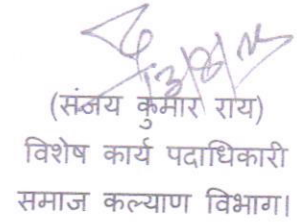 (संजय कुमार राय)
विशेष कार्य पदाधिकारी
समाज कल्याण विभाग।